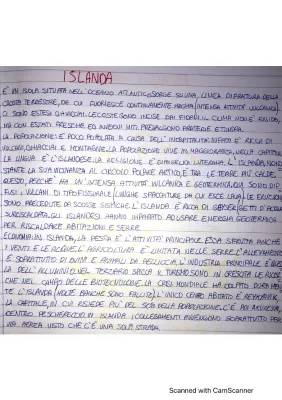 ISLANDA
È UN ISOLA SITUATA NELL'OCEANO ATLANTICO, SORGE SU UNA LINEA DI FRATTURA DELLA
CROSTA TERRESTRE, DA CUI FUORIESCE CONTINUAMENTE MAGMA (INTENSA ATTIVITÀ VULCANICA)
CI SONO ESTESI GHIACCIAI. LE COSTE SONO INCISE DAI FIORDI. IL CLIMA NON È RIGIDO,
MA CON ESTATI FRESCHE ED INVERNI MITI PREVALGONO PRATERIE E TUNDRA.
LA POPOLAZIONE: È POCO POPOLATA A CAUSA DELL'INOSPITALITÀ. INFATTI È RICCA DI
VULCANI, GHIACCIAI E MONTAGNE. LA POPOLAZIONE VIVE IN MAGGIORANZA NELLA CAPITALE
LA LINGUA È L'ISLANDESE. LA RELIGIONE È EVANGELICA LUTERANA. L'ISLANDA, NONO
STANTE LA SUA VICINANZA AL CIRCOLO POLARE ARTICO, È TRA LE TERRE PIÙ CALDE.
PERCHÈ HA UN'INTENSA ATTIVITÀ VULCANICA E GEOTERMICA. QUI SONO DIF
FUSI I VULCANI DI TIPO FISSURALE (LUNGHE SPACCATURE DA CUI ESCE LAVA). LE ERUZIONI
SONO PRECEDUTE DA SCOSSE SISMICHE. L'ISLANDA È RICCA DI GEYSER, GETTI D'ACQUA
GLI ISLANDESI HANNO IMPARATO AD USARE ENERGIA GEOTERMICA
PER RISCALDARE ABITAZIONI E SERRE.
ECONOMIA: IN ISLANDA, LA PESCA È L'ATTIVITÀ PRINCIPALE. ESSA SFRUTTA ANCHE
I VENTI E LE ACQUE. L'AGRICOLTURA È LIMITATA NELLE SERRE. L'ALLEVAMENTO
È SOPRATTUTTO DI OVINI E ANIMALI DA PELLICCIA. L'INDUSTRIA PRINCIPALE È QUEL
LA DELL'ALLUMINIO. NEL TERZIARIO SPICCA IL TURISMO. SONO IN CRESCITA LE RICER
CHE NEL CAMPO DELLE BIOTECNOLOGIE. LA CRISI MONDIALE HA COLPITO DURAMEN
TE L'ISLANDA (MOLTE BANCHE SONO FALLITE). L'UNICO CENTRO ABITATO È REYKJAVIK,
LA CAPITALE, IN CUI RISIEDE PIÙ DEL 50% DELLA POPOLAZIONE. C'È POI AKUREYRI,
CENTRO PESCHERECCIO IN ISLANDA. I COLLEGAMENTI AVVENGONO SOPRATTUTTO PER
VIA AEREA VISTO CHE C'È UNA SOLA STRADA.
Scanned with CamScanner